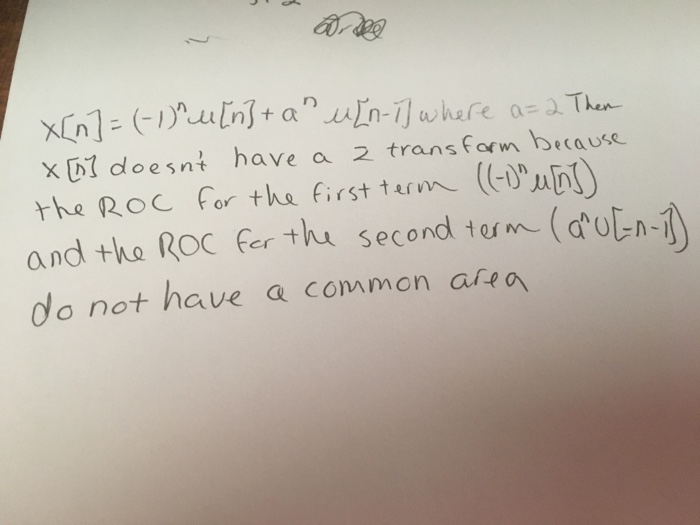 x[n] = (-1)ⁿ u[n] + aⁿ u[n-1] where a=2 Then
x[n] doesn't have a z transform because
the ROC for the first term ((-1)ⁿ u[n])
and the ROC for the second term (aⁿ u[-n-1])
do not have a common area